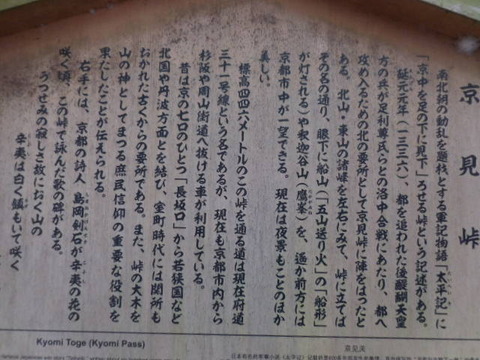 京見峠
南北朝の動乱を題材とする軍記物語「太平記」に
「京中を足の下に見下」ろせる峠という記述がある。
延元元年（一三三六）、都を追われた後醍醐天皇
方の兵が足利尊氏らとの洛中合戦にあたり、都へ
攻め入るための北の要所として京見峠に陣をはったと
ある。北山・東山の諸峰を左右にみて、峠に立てば
その名の通り、眼下に船山（「五山送り火」の「船形」
が灯される）や釈迦谷山（鷹峯）を、遥か前方には
京都市中が一望できる。現在は夜景もことのほか
美しい。
標高四四六メートルのこの峠を通る道は現在府道
三十一号線という名であるが、現在も京都市内から
杉阪や周山街道へ抜ける車が利用している。
昔は京の七口のひとつ「長坂口」から若狭国など
北国や丹波方面とを結び、室町時代には関所も
おかれた古くからの要所である。また、峠の大木を
山の神としてまつる庶民信仰の重要な役割を
果たしたことが伝えられる。
右手には、京都の詩人 島岡剣石が辛夷の花の
咲く頃、この峠で詠んだ歌の碑がある。
うつせみの寂しさ故に於く山の
辛夷は白く鎮もいて咲く
Kyomi Toge (Kyomi Pass)